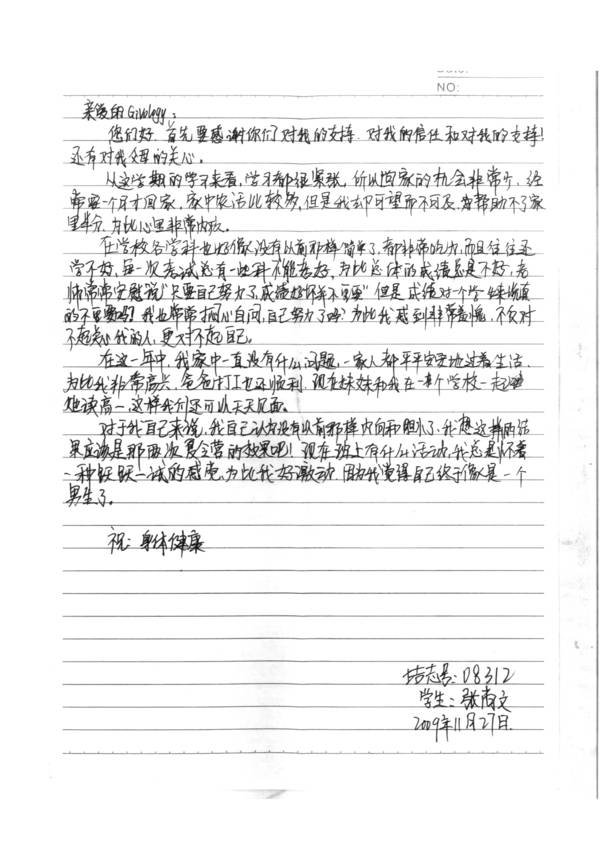 NO:
亲爱的Givology:
您们好,首先要感谢你们对我的支持,对我的信任和对我的支持!
还有对我父母的关心。
从这学期的学习来看,学习都很紧张,所以回家的机会非常少,经
常要一个月才回家,家中农活比较多,但是我却可望而不可及,为帮助不了家
里半分,为此心里非常内疚。
在学校各学科也好像没有以前那样简单了,都非常吃力,而且往往还
学不好,每一次考试总有一些科不能考好,为此总体的成绩总是不好,老
师常常安慰说"只要自己努力了,成绩好坏并不重要"但是成绩对个学生来说真
的不重要吗?我也常常扪心自问,自己努力了吗?为此我感到非常羞愧,不仅对
不起关心我的人,更对不起自己。
在这一年中,我家中一直没有什么问题,一家人都平平安安地过着生活,
为此我非常高兴,爸爸打工也还顺利,现在妹妹和我在一个学校一起
她读高一,这样我们还可以天天见面。
对于我自己来说,我自己认为没有以前那样内向和胆小了,我想这样的结
果应该是那两次夏令营的效果吧!现在班上有什么活动,我总是怀着
一种跃跃一试的感觉,为此我好激动,因为我觉得自己终于像是一个
男生了。
祝:身体健康
结志号:08312
学生:张南文
2009年11月27日.